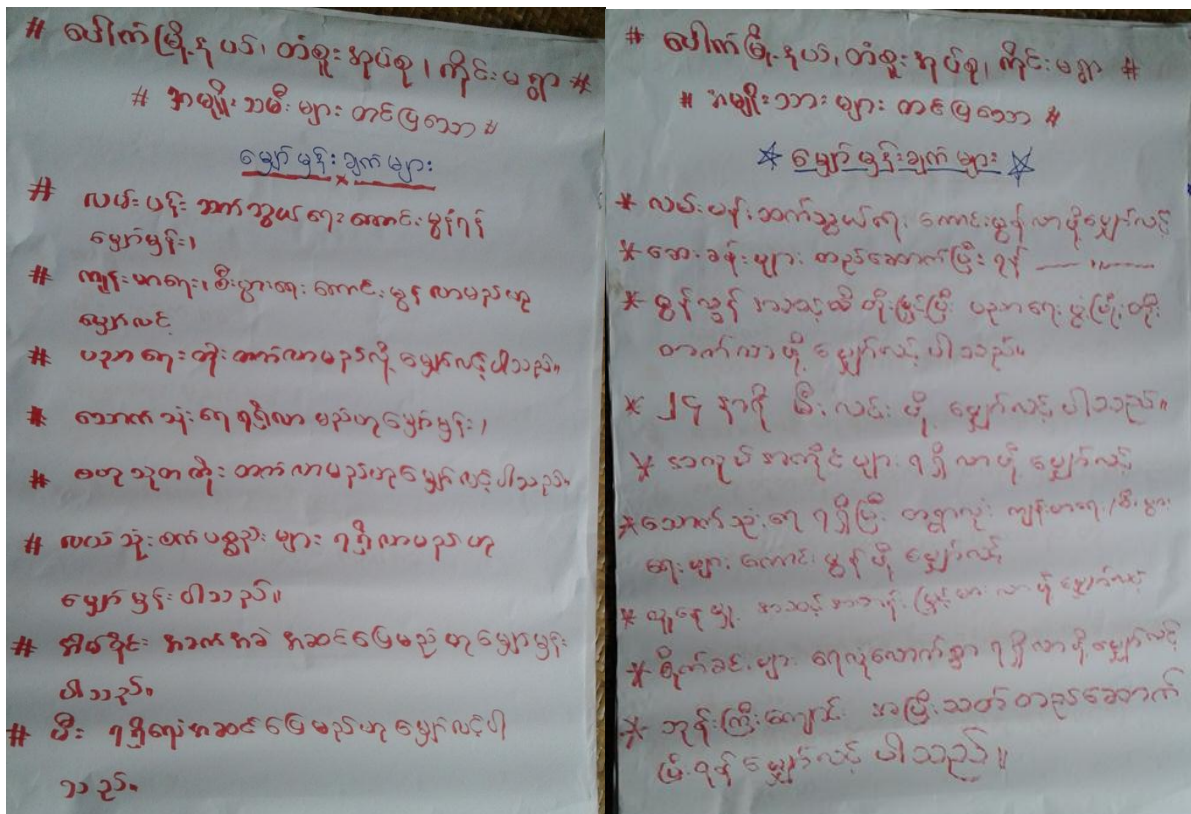 # ပေါက်မြို့နယ်၊ တံစူးအုပ်စု၊ ကိုင်းမရွာ #
# အမျိုးသမီးများ တင်ပြသော #
မျှော်မှန်းချက်များ
# လမ်းပန်းဆက်သွယ်ရေးကောင်းမွန်ရန်
မျှော်မှန်း၊
# ကျန်းမာရေး၊ စီးပွားရေး ကောင်းမွန်လာမည်ဟု
မျှော်လင့်
# ပညာရေးတိုးတက်လာမည်လို့ မျှော်လင့်ပါသည်။
# သောက်သုံးရေရရှိလာမည်ဟုမျှော်မှန်း၊
# ဗဟုသုတတိုးတက်လာမည်ဟုမျှော်လင့်ပါသည်။
# လယ်သုံးစက်ပစ္စည်းများ ရရှိလာမည်ဟု
မျှော်မှန်းပါသည်။
# အိမ်တိုင်း အခက်အခဲ အဆင်ပြေမည်ဟုမျှော်မှန်း
ပါသည်။
# မီး ရရှိရေးအဆင်ပြေမည်ဟုမျှော်လင့်ပါ
သည်။
# ပေါက်မြို့နယ်၊ တံစူးအုပ်စု၊ ကိုင်းမရွာ #
# အမျိုးသားများ တင်ပြသော #
မျှော်မှန်းချက်များ
* လမ်းပန်းဆက်သွယ်ရေး ကောင်းမွန်လာဖို့မျှော်လင့်
* ဆေးခန်းများ တည်ဆောက်ပြီးရန် — " —
* မွန်သွန် အဆင့်ထိတိုးမြှင့်ပြီး ပညာရေးဖွံ့ဖြိုးတိုး
တက်လာဖို့ မျှော်လင့်ပါသည်။
* ၂၄ နာရီ မီးလင်းဖို့ မျှော်လင့်ပါသည်။
* အလုပ်အကိုင်များ ရရှိလာဖို့ မျှော်လင့်
* သောက်သုံးရေ ရရှိပြီး တစ်ရွာလုံး ကျန်းမာရေး/စီးပွား
ရေးများ ကောင်းမွန်ဖို့ မျှော်လင့်
* လူနေမှု အဆင့်အတန်း မြင့်မားလာဖို့ မျှော်လင့်
* စိုက်ခင်းများ ရေလုံလောက်စွာ ရရှိလာဖို့ မျှော်လင့်
* ဘုန်းကြီးကျောင်း အပြီးသတ်တည်ဆောက်
ပြီးရန် မျှော်လင့်ပါသည်။